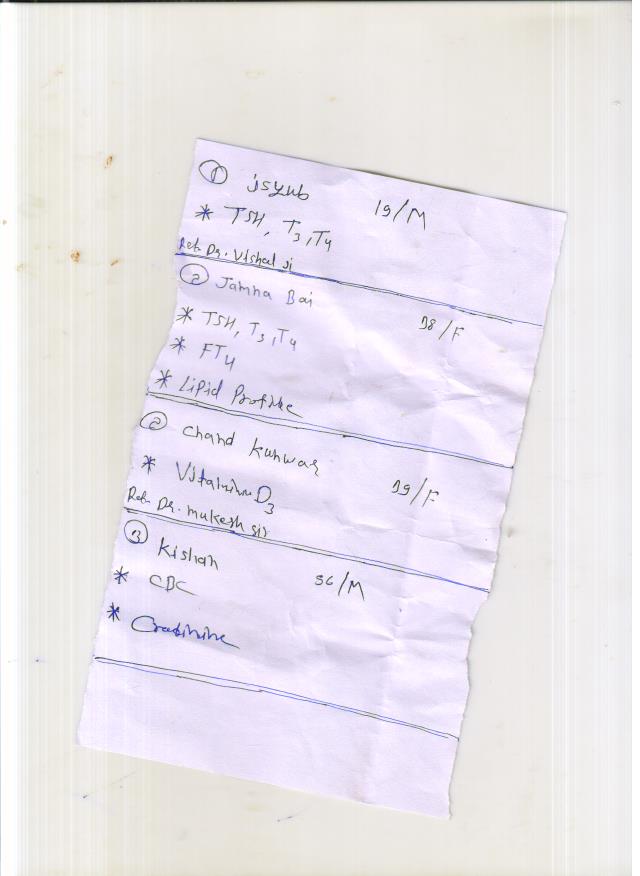 ① jsyub 19/M
* TSH, T3, T4
Ref. Dr. Vishal ji
② Jamna Bai 38/F
* TSH, T3, T4
* FT4
* Lipid Profile
② Chand Kunwar 39/F
* Vitamin D3
Ref. Dr. mukesh sir
③ Kishan 36/M
* CBC
* Creatinine